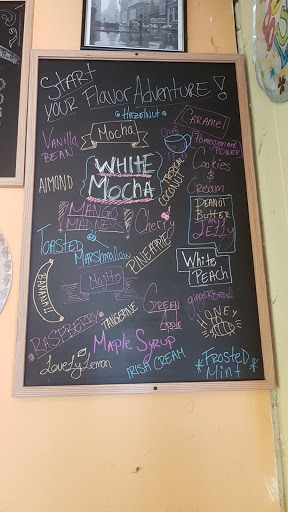 START
YOUR FLAVOR ADVENTURE!
HAZELNUT
CARAMEL
Mocha
Chai
Pomegranate
Power
Vanilla
BEAN
WHITE
MOCHA
TROPICAL
COCONUT
Cookies
&
Cream
ALMOND
MANGO
MADNESS
Cherry
PEANUT
BUTTER
JELLY
TOASTED
MARSHMALLOW
PINEAPPLE
White
PEACH
BANANA!!
Mojito
gingerbread
GREEN
Apple
HONEY
RASPBERRY
TANGERINE
MAPLE SYRUP
Lovely Lemon
IRISH CREAM
*FROSTED*
MINT